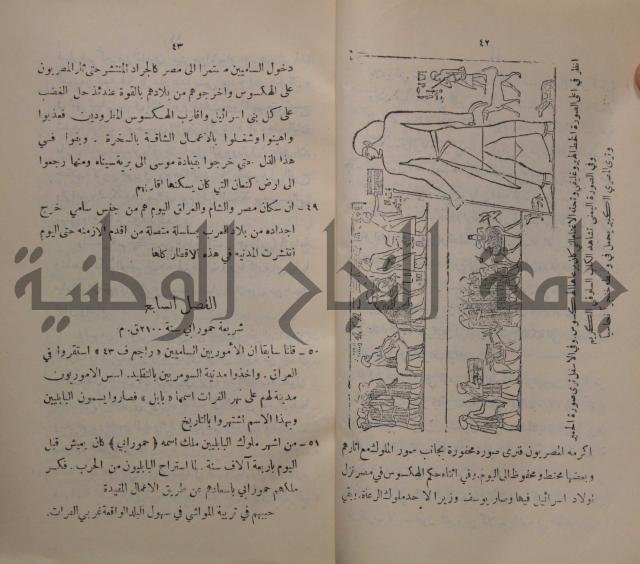 ٤٢
انظر في اعلى الصورة
وفي الصورة اليمنى تشاهد الكلب السلوقي الكريم
اكرمه المصريون فترى صوره محفورة بجانب صور الملوك مع آثارهم
وبعضها محنط ومحفوظ الى اليوم. وفي اثناء حكم الهكسوس في مصر نزل
اولاد اسرائيل فيها وصار يوسف وزيرا لاحد ملوك الرعاة. وبقي
٤٣
دخول الساميين مستمرا الى مصر كالجراد المنتشر حتى ثار المصريون
على الهكسوس واخرجوهم من بلادهم بالقوة عندئذ حل الغضب
على كل بني اسرائيل واقارب الهكسوس المطرودين فعذبوا
واهينوا وشغلوا بالاعمال الشاقة بالسخرة . وبقوا في
هذا الذل حتى خرجوا بقيادة موسى الى برية سيناء ومنها رجعوا
الى ارض كنعان التي كان يسكنها اقاربهم
٤٩ـ ان سكان مصر والشام والعراق اليوم هم من جنس سامي خرج
اجداده من بلاد العرب بسلسلة متصلة من اقدم الازمنه حتى اليوم
فانتشرت المدنيه في هذه الاقطار كلها
الفصل السابع
شريعة حمورابي سنة ٢١٠٠ ق . م
٥٠ـ قلنا سابقا ان الأموريين الساميين « راجع ف ٤٣ » استقروا في
العراق . واخذوا مدنية السومريين بالتقليد. اسس الاموريون
مدينة لهم على نهر الفرات اسمها « بابل » فصاروا يسمون البابليين
وبهذا الاسم اشتهروا بالتاريخ
٥١ـ من اشهر ملوك البابليين ملك اسمه (حمورابي) كان يعيش قبل
اليوم باربعة آلاف سنة . لما استراح البابليون من الحرب. فكر
ملكهم حمورابي باسعادهم عن طريق الاعمال المفيدة
حببهم في تربية المواشي في سهول البلد الواقعة غربي الفرات.
جامعة النجاح الوطنية